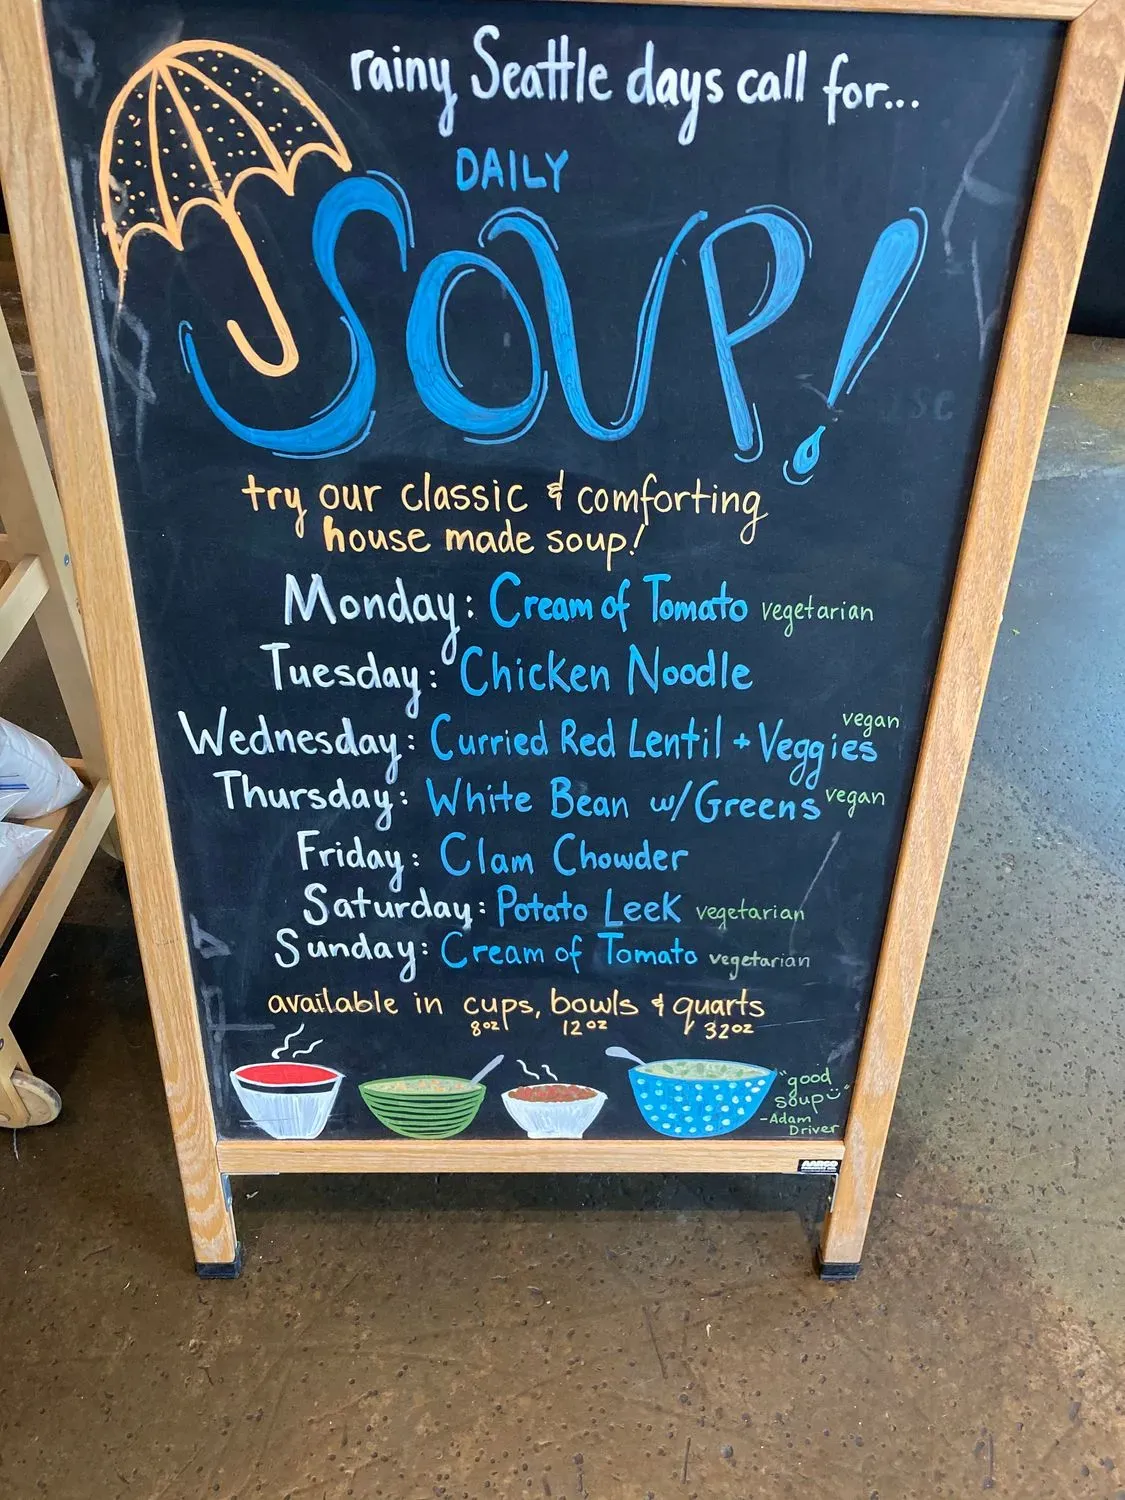 rainy Seattle days call for...
DAILY
SOUP!
try our classic & comforting
house made soup!
Monday: Cream of Tomato vegetarian
Tuesday: Chicken Noodle
Wednesday: Curried Red Lentil + Veggies vegan
Thursday: White Bean w/ Greens vegan
Friday: Clam Chowder
Saturday: Potato Leek vegetarian
Sunday: Cream of Tomato vegetarian
available in cups, bowls & quarts
8oz 12oz 32oz
"good
soup"
-Adam
Driver
AARCO